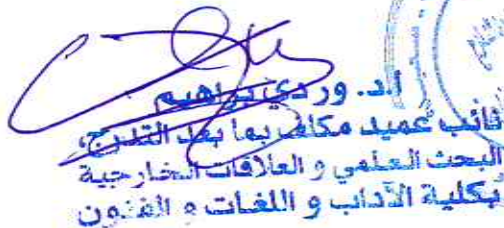 ا.د. وردي براهيم
نائب عميد مكلف بما بعد التدرج،
البحث العلمي و العلاقات الخارجية
بكلية الآداب و اللغات و الفنون